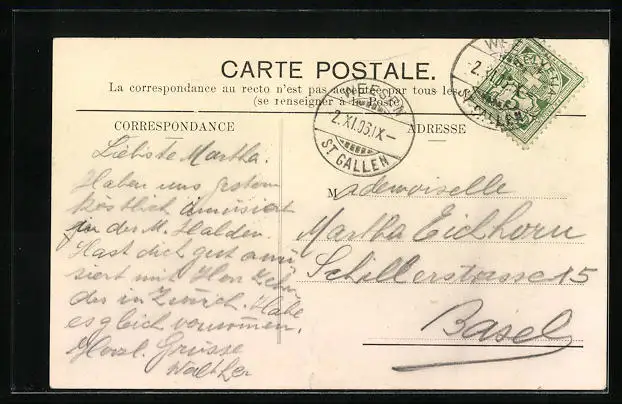 CARTE POSTALE.
La correspondance au recto n'est pas acceptée par tous les
(se renseigner à la Poste)
CORRESPONDANCE
ADRESSE
WEESEN
2.XI.06.IX-
ST GALLEN
HELVETIA
Liebste Martha.
Haben uns gestern
köstlich amüsiert
in der M. Halden.
Hast dich gut amü
siert mit Herr Zehn
der in Zürich. Habe
es gleich vernommen.
Herzl. Grüsse
Walther
Mademoiselle
Martha Eichhorn
Schillerstrasse 15
Basel